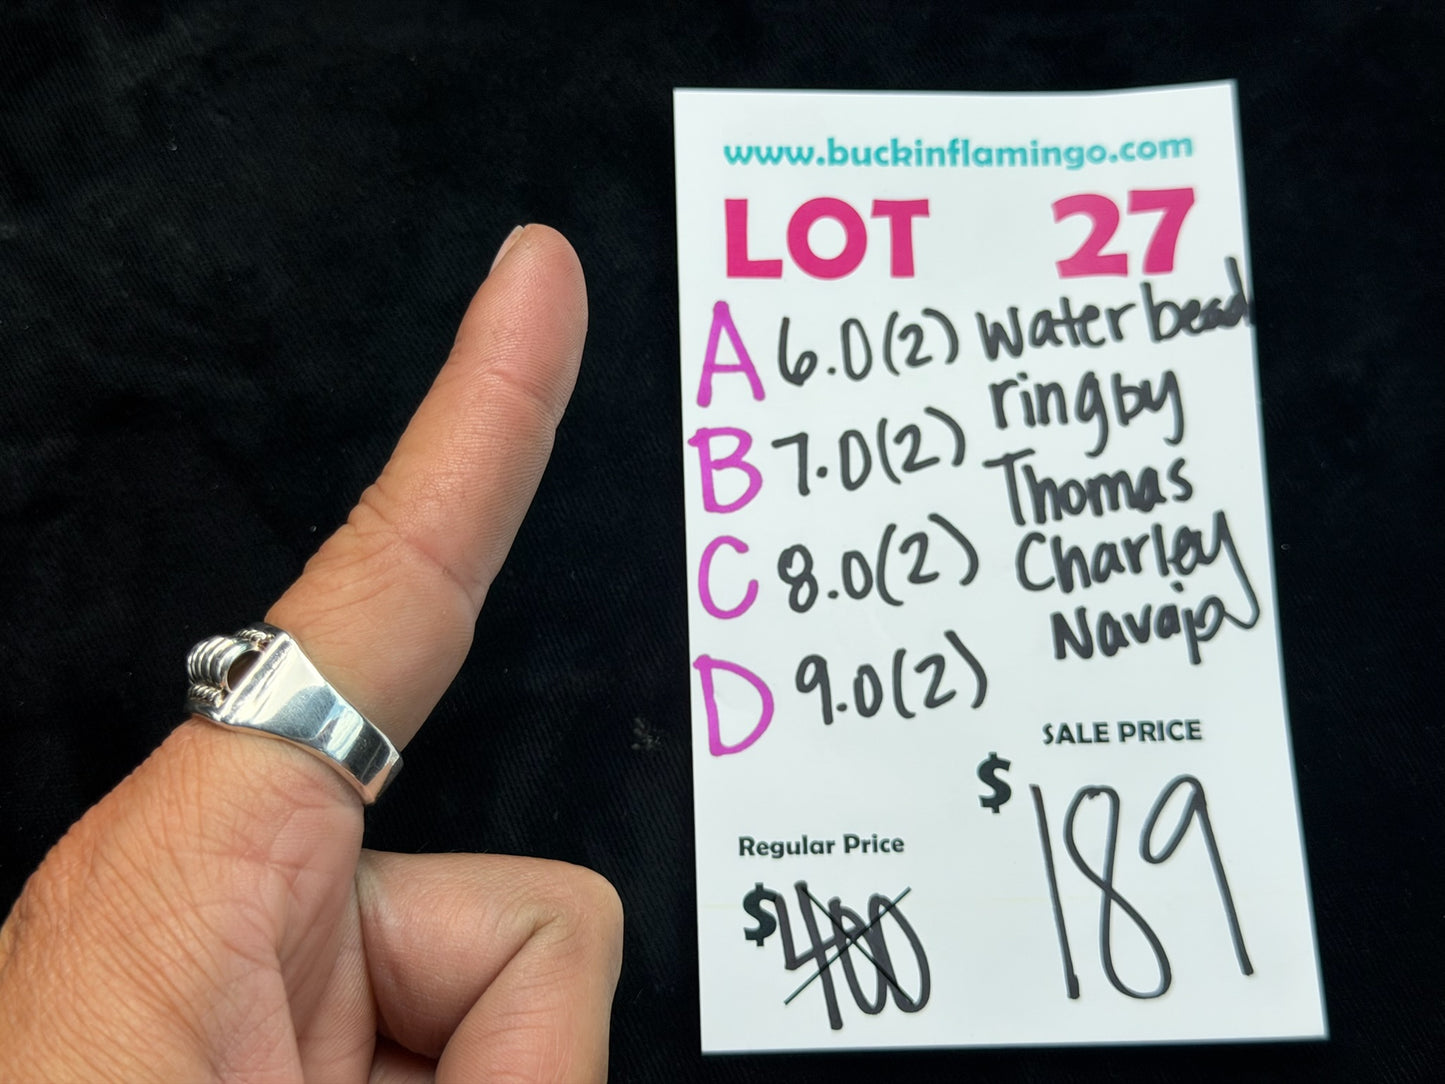 www.buckinflamingo.com
LOT 27
A 6.0(2) Water bead
ring by
B 7.0(2) Thomas
C 8.0(2) Charley
Navajo
D 9.0(2)
SALE PRICE
$ 189
Regular Price
$400